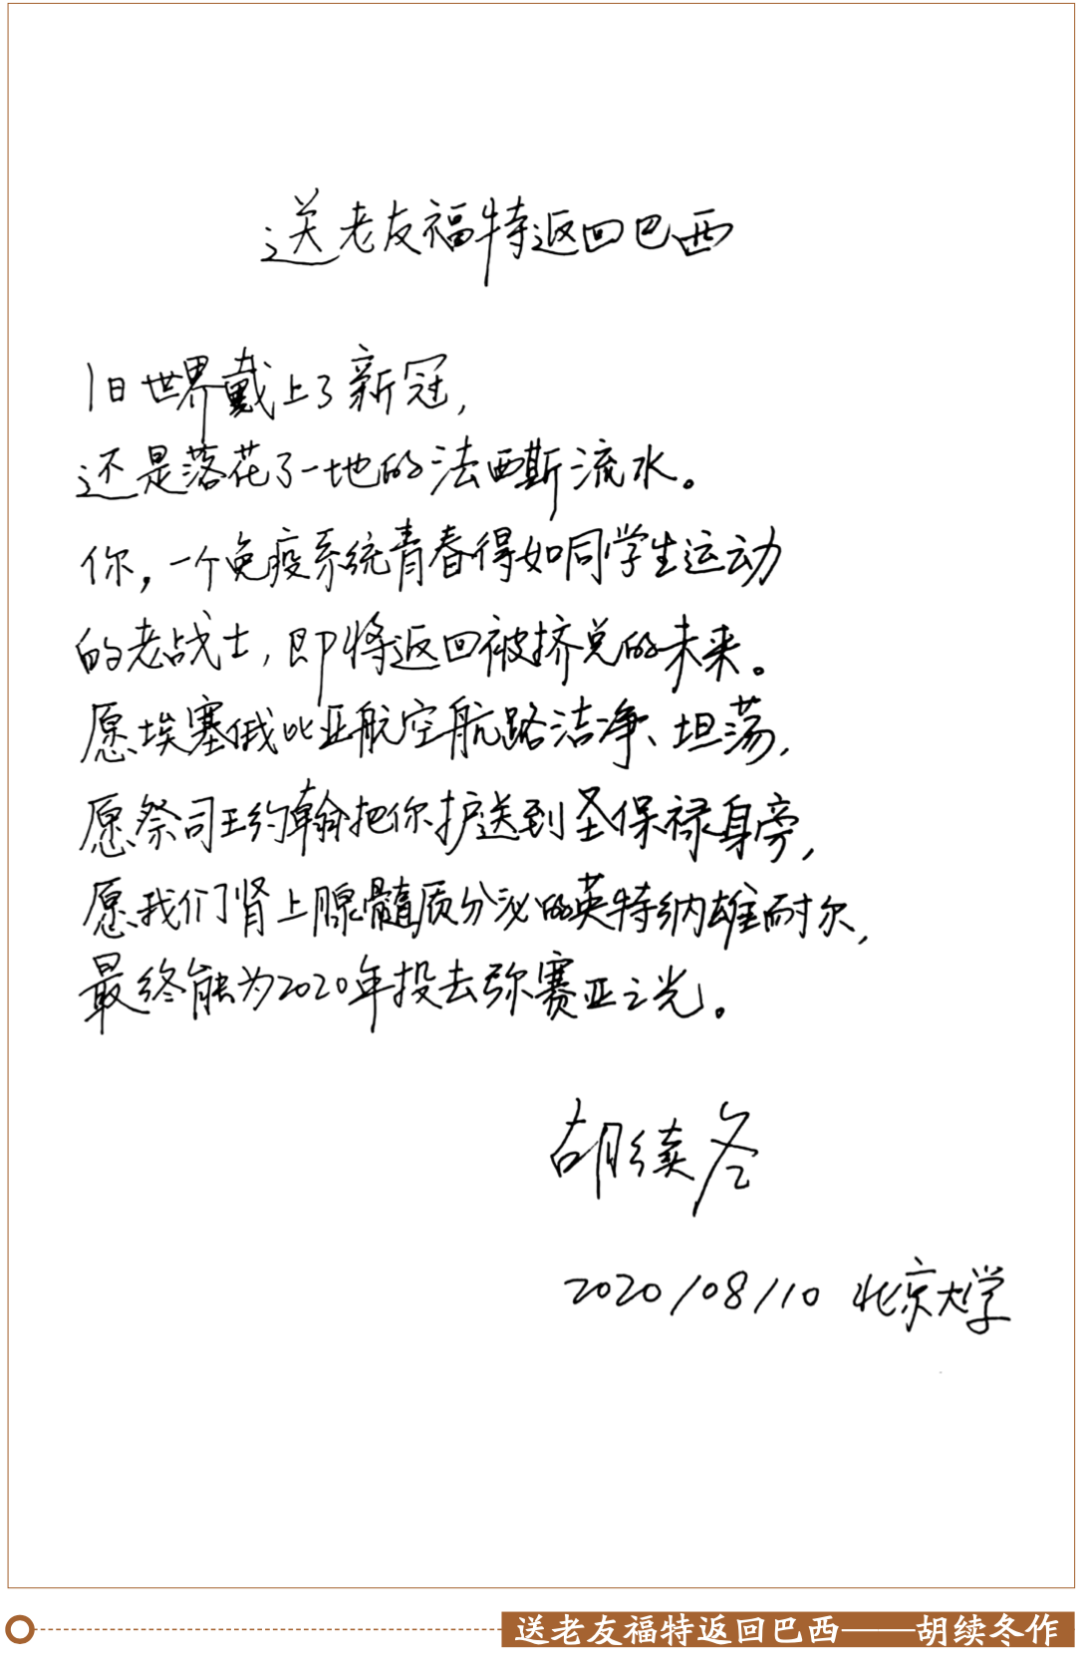 送老友福特返回巴西
旧世界戴上了新冠，
还是落花了一地的法西斯流水。
你，一个免疫系统青春得如同学生运动
的老战士，即将返回被挤兑的未来。
愿埃塞俄比亚航空航路洁净、坦荡，
愿祭司王约翰把你护送到圣保禄身旁，
愿我们肾上腺髓质分泌的英特纳雄耐尔，
最终能为2020年投去弥赛亚之光。
胡续冬
2020/08/10 北京大学
送老友福特返回巴西——胡续冬作